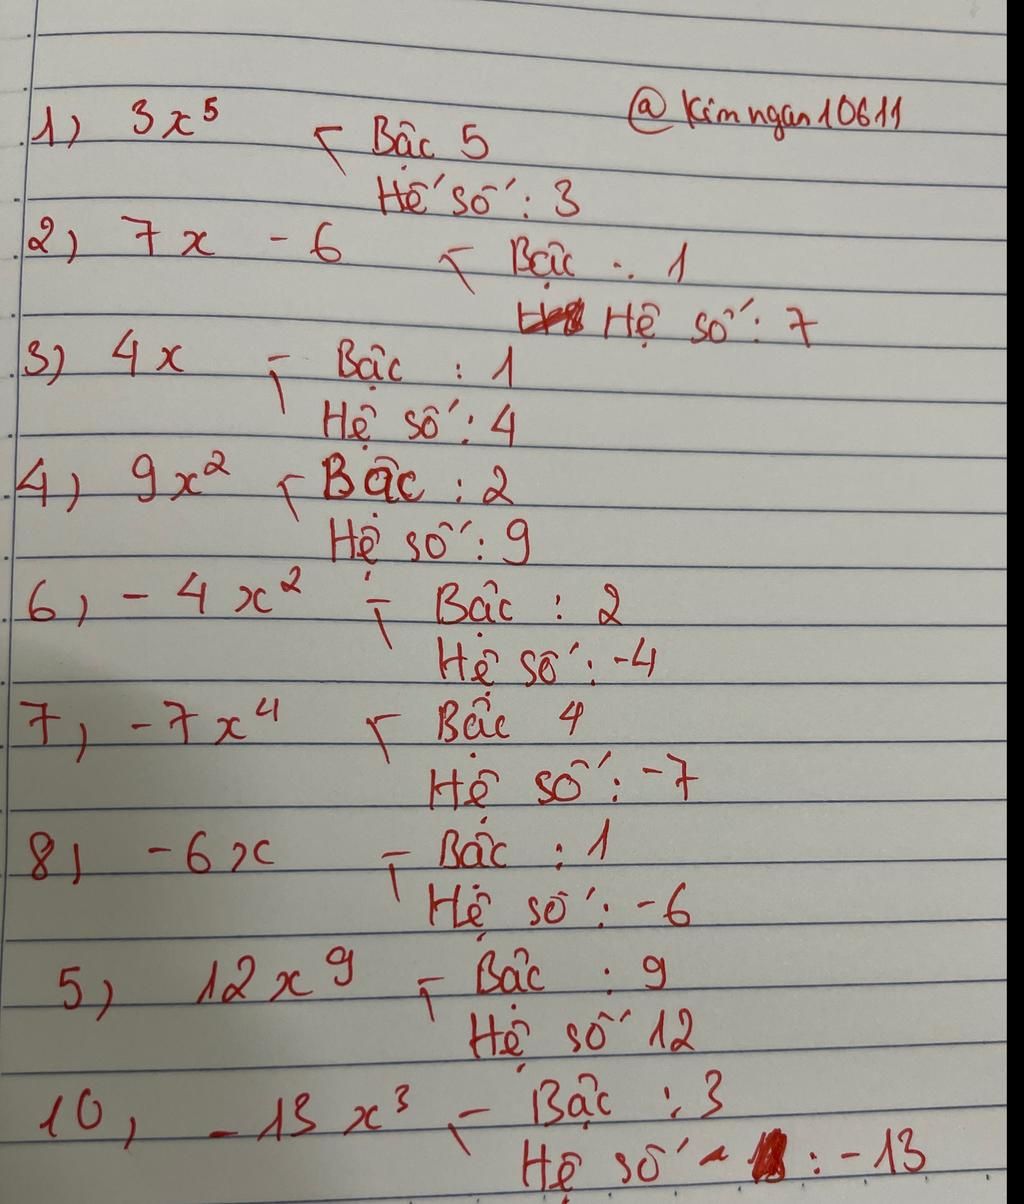 @kimngan10611
1) 3x⁵ Bậc 5
Hệ số : 3
2) 7x - 6 Bậc : 1
Hệ số : 7
3) 4x Bậc : 1
Hệ số : 4
4) 9x² Bậc : 2
Hệ số : 9
6) - 4x² Bậc : 2
Hệ số : -4
7) -7x⁴ Bậc 4
Hệ số : -7
8) -6x Bậc : 1
Hệ số : -6
5) 12x⁹ Bậc : 9
Hệ số 12
10) -13x³ Bậc : 3
Hệ số - : -13